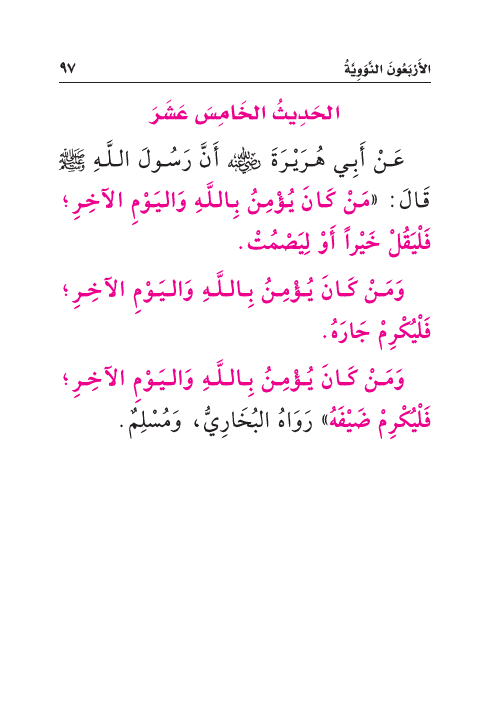 الأَرْبَعُونَ النَّوَوِيَّةُ ٩٧
الحَدِيثُ الخَامِسَ عَشَرَ
عَنْ أَبِي هُرَيْرَةَ رضي الله عنه أَنَّ رَسُولَ اللَّهِ ﷺ
قَالَ: «مَنْ كَانَ يُؤْمِنُ بِاللَّهِ وَاليَوْمِ الآخِرِ؛
فَلْيَقُلْ خَيْراً أَوْ لِيَصْمُتْ.
وَمَنْ كَانَ يُؤْمِنُ بِاللَّهِ وَاليَوْمِ الآخِرِ؛
فَلْيُكْرِمْ جَارَهُ.
وَمَنْ كَانَ يُؤْمِنُ بِاللَّهِ وَاليَوْمِ الآخِرِ؛
فَلْيُكْرِمْ ضَيْفَهُ» رَوَاهُ البُخَارِيُّ، وَمُسْلِمٌ.